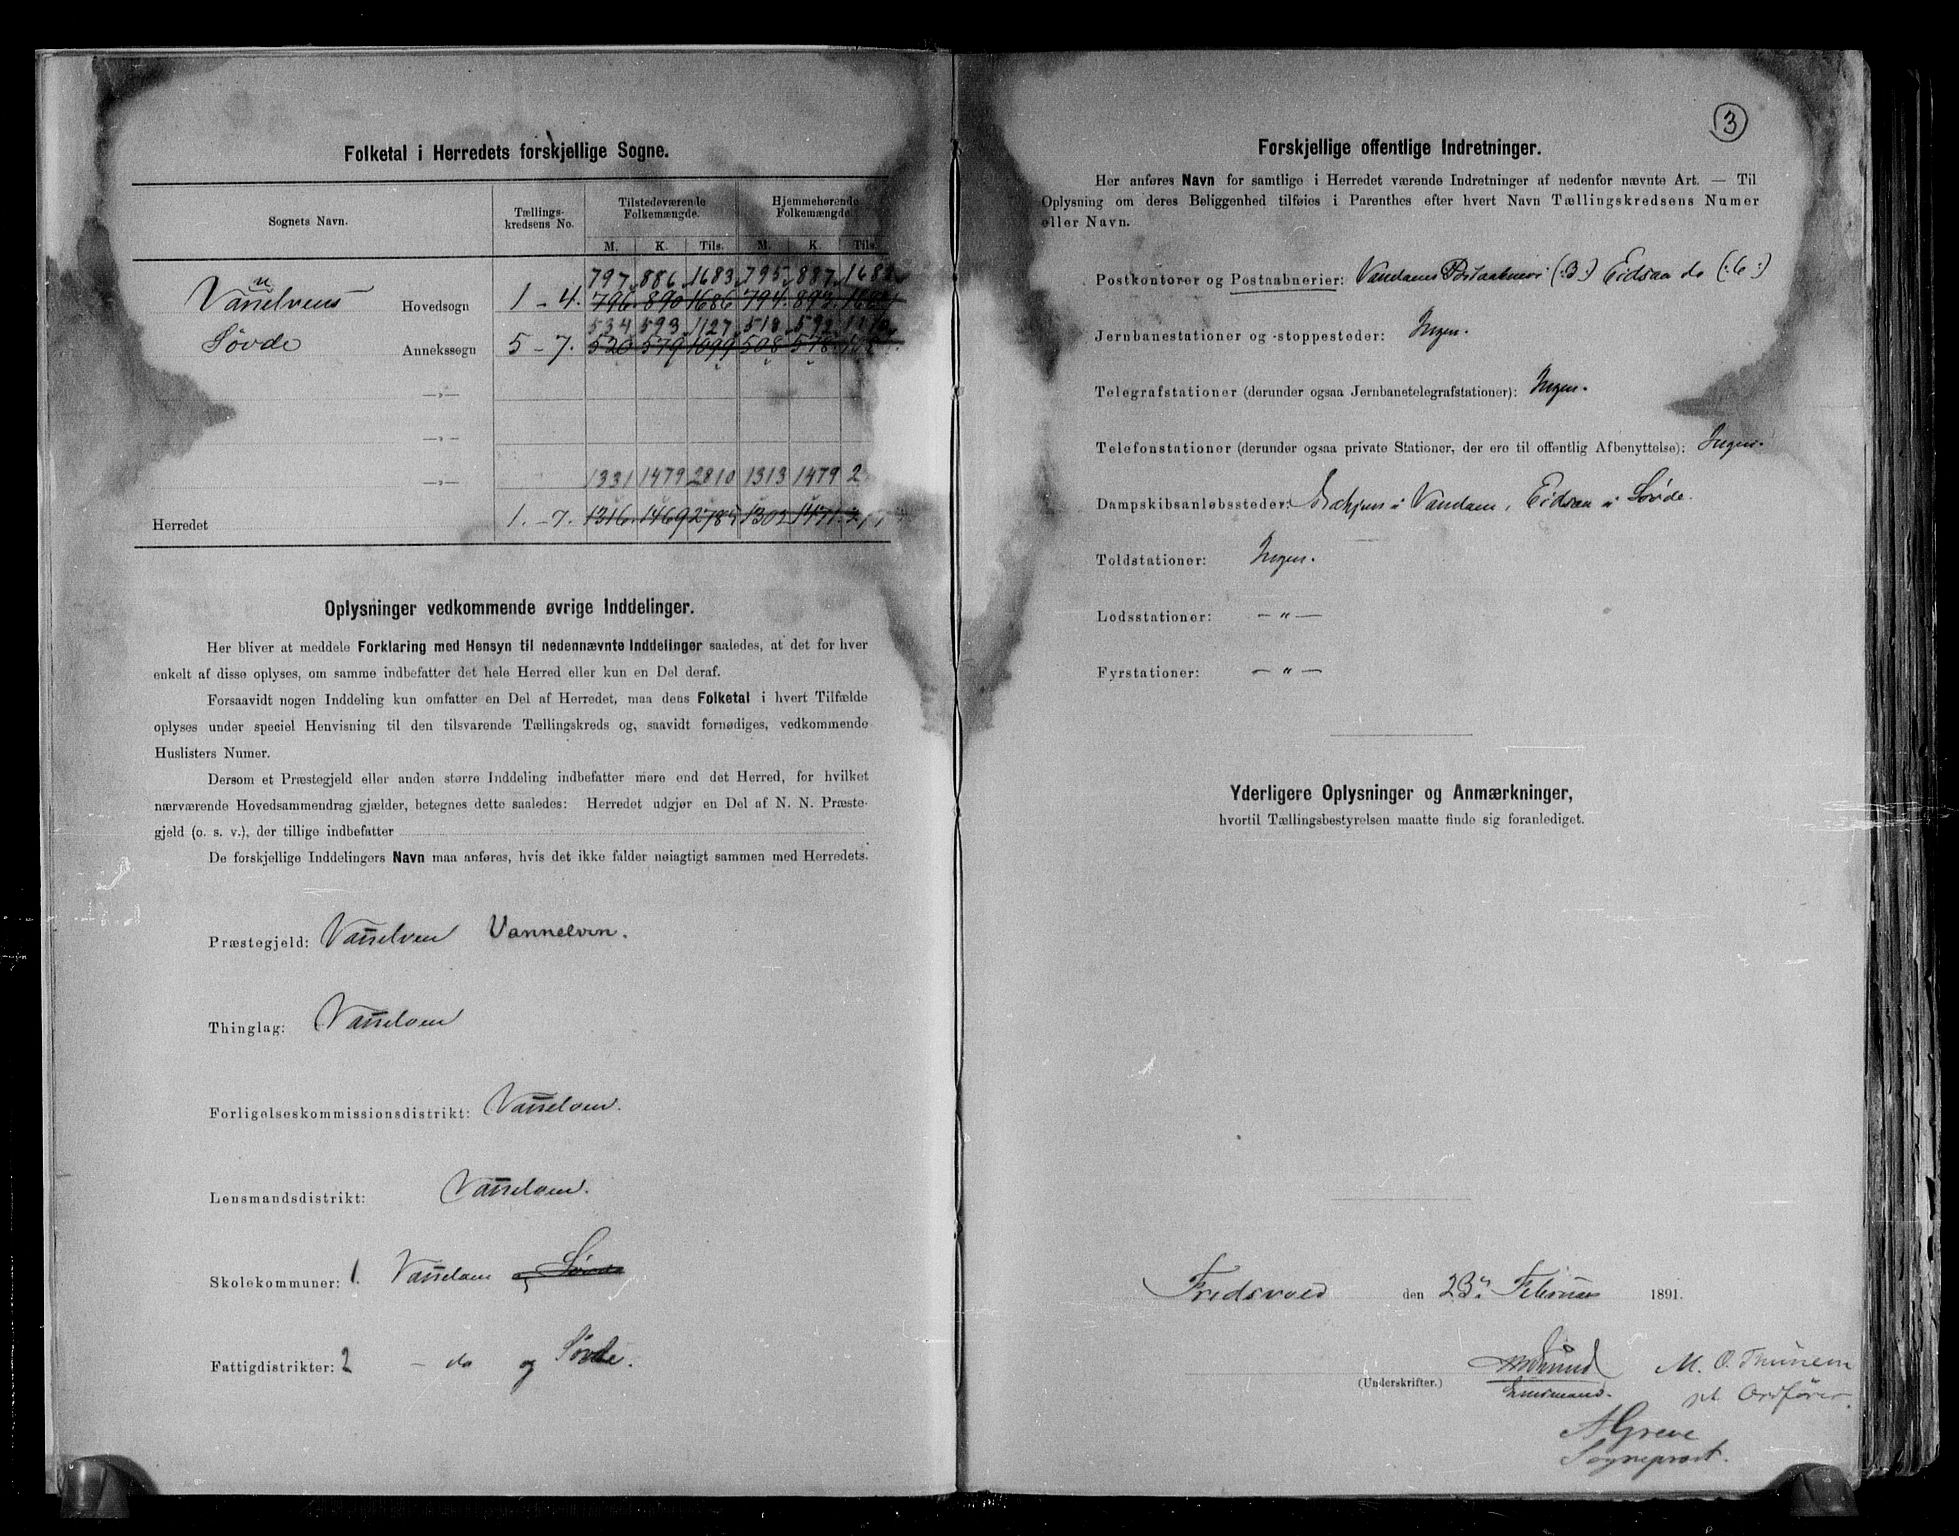 Folketal i Herredets forskjellige Sogne.
Sognets Navn.
Tællings-
kredsens No.
Tilstedeværende
Folkemængde.
Hjemmehørende
Folkemængde.
M. K. Tils. M. K. Tils.
797 886 1683 795 887 168
Vanelvens Hovedsogn 1-4. 796 890 1686 794 893
534 593 1127 518 592
Søvde Annekssogn 5-7. 520 579 1099 508 578
—„—
—„—
1331 1479 2810 1313 1479 2
—„—
Herredet 1.-7. 1316 1469 2785 1302 1471
Oplysninger vedkommende øvrige Inddelinger.
Her bliver at meddele Forklaring med Hensyn til nedennævnte Inddelinger saaledes, at det for hver
enkelt af disse oplyses, om samme indbefatter det hele Herred eller kun en Del deraf.
Forsaavidt nogen Inddeling kun omfatter en Del af Herredet, maa dens Folketal i hvert Tilfælde
oplyses under speciel Henvisning til den tilsvarende Tællingskreds og, saavidt fornødiges, vedkommende
Huslisters Numer.
Dersom et Præstegjeld eller anden større Inddeling indbefatter mere end det Herred, for hvilket
nærværende Hovedsammendrag gjælder, betegnes dette saaledes: Herredet udgjør en Del af N. N. Præste-
gjeld (o. s. v.), der tillige indbefatter
De forskjellige Inddelingers Navn maa anføres, hvis det ikke falder nøiagtigt sammen med Herredets.
Præstegjeld: Vanelven Vannelven.
Thinglag: Vanelven
Forligelseskommissionsdistrikt: Vanelven.
Lensmandsdistrikt: Vanelven.
Skolekommuner: 1. Vanelven og Søvde
Fattigdistrikter: 2 — do og Søvde.
3
Forskjellige offentlige Indretninger.
Her anføres Navn for samtlige i Herredet værende Indretninger af nedenfor nævnte Art. — Til
Oplysning om deres Beliggenhed tilføies i Parenthes efter hvert Navn Tællingskredsens Numer
eller Navn.
Postkontorer og Postaabnerier: Vandams Postaabneri (:3:) Eidsaa do (:6:)
Jernbanestationer og -stoppesteder: Ingen.
Telegrafstationer (derunder ogsaa Jernbanetelegrafstationer): Ingen.
Telefonstationer (derunder ogsaa private Stationer, der ere til offentlig Afbenyttelse): Ingen.
Dampskibsanløbssteder: i Vandam, Eidsaa i Søvde.
Toldstationer: Ingen.
Lodsstationer: — „ —
Fyrstationer: — „ —
Yderligere Oplysninger og Anmærkninger,
hvortil Tællingsbestyrelsen maatte finde sig foranlediget.
Fredsvold den 23. Februar 1891.
(Underskrifter.) M. O. Thunem
Lensmand. pt. Ordfører.
A Greve
Sogneprest.